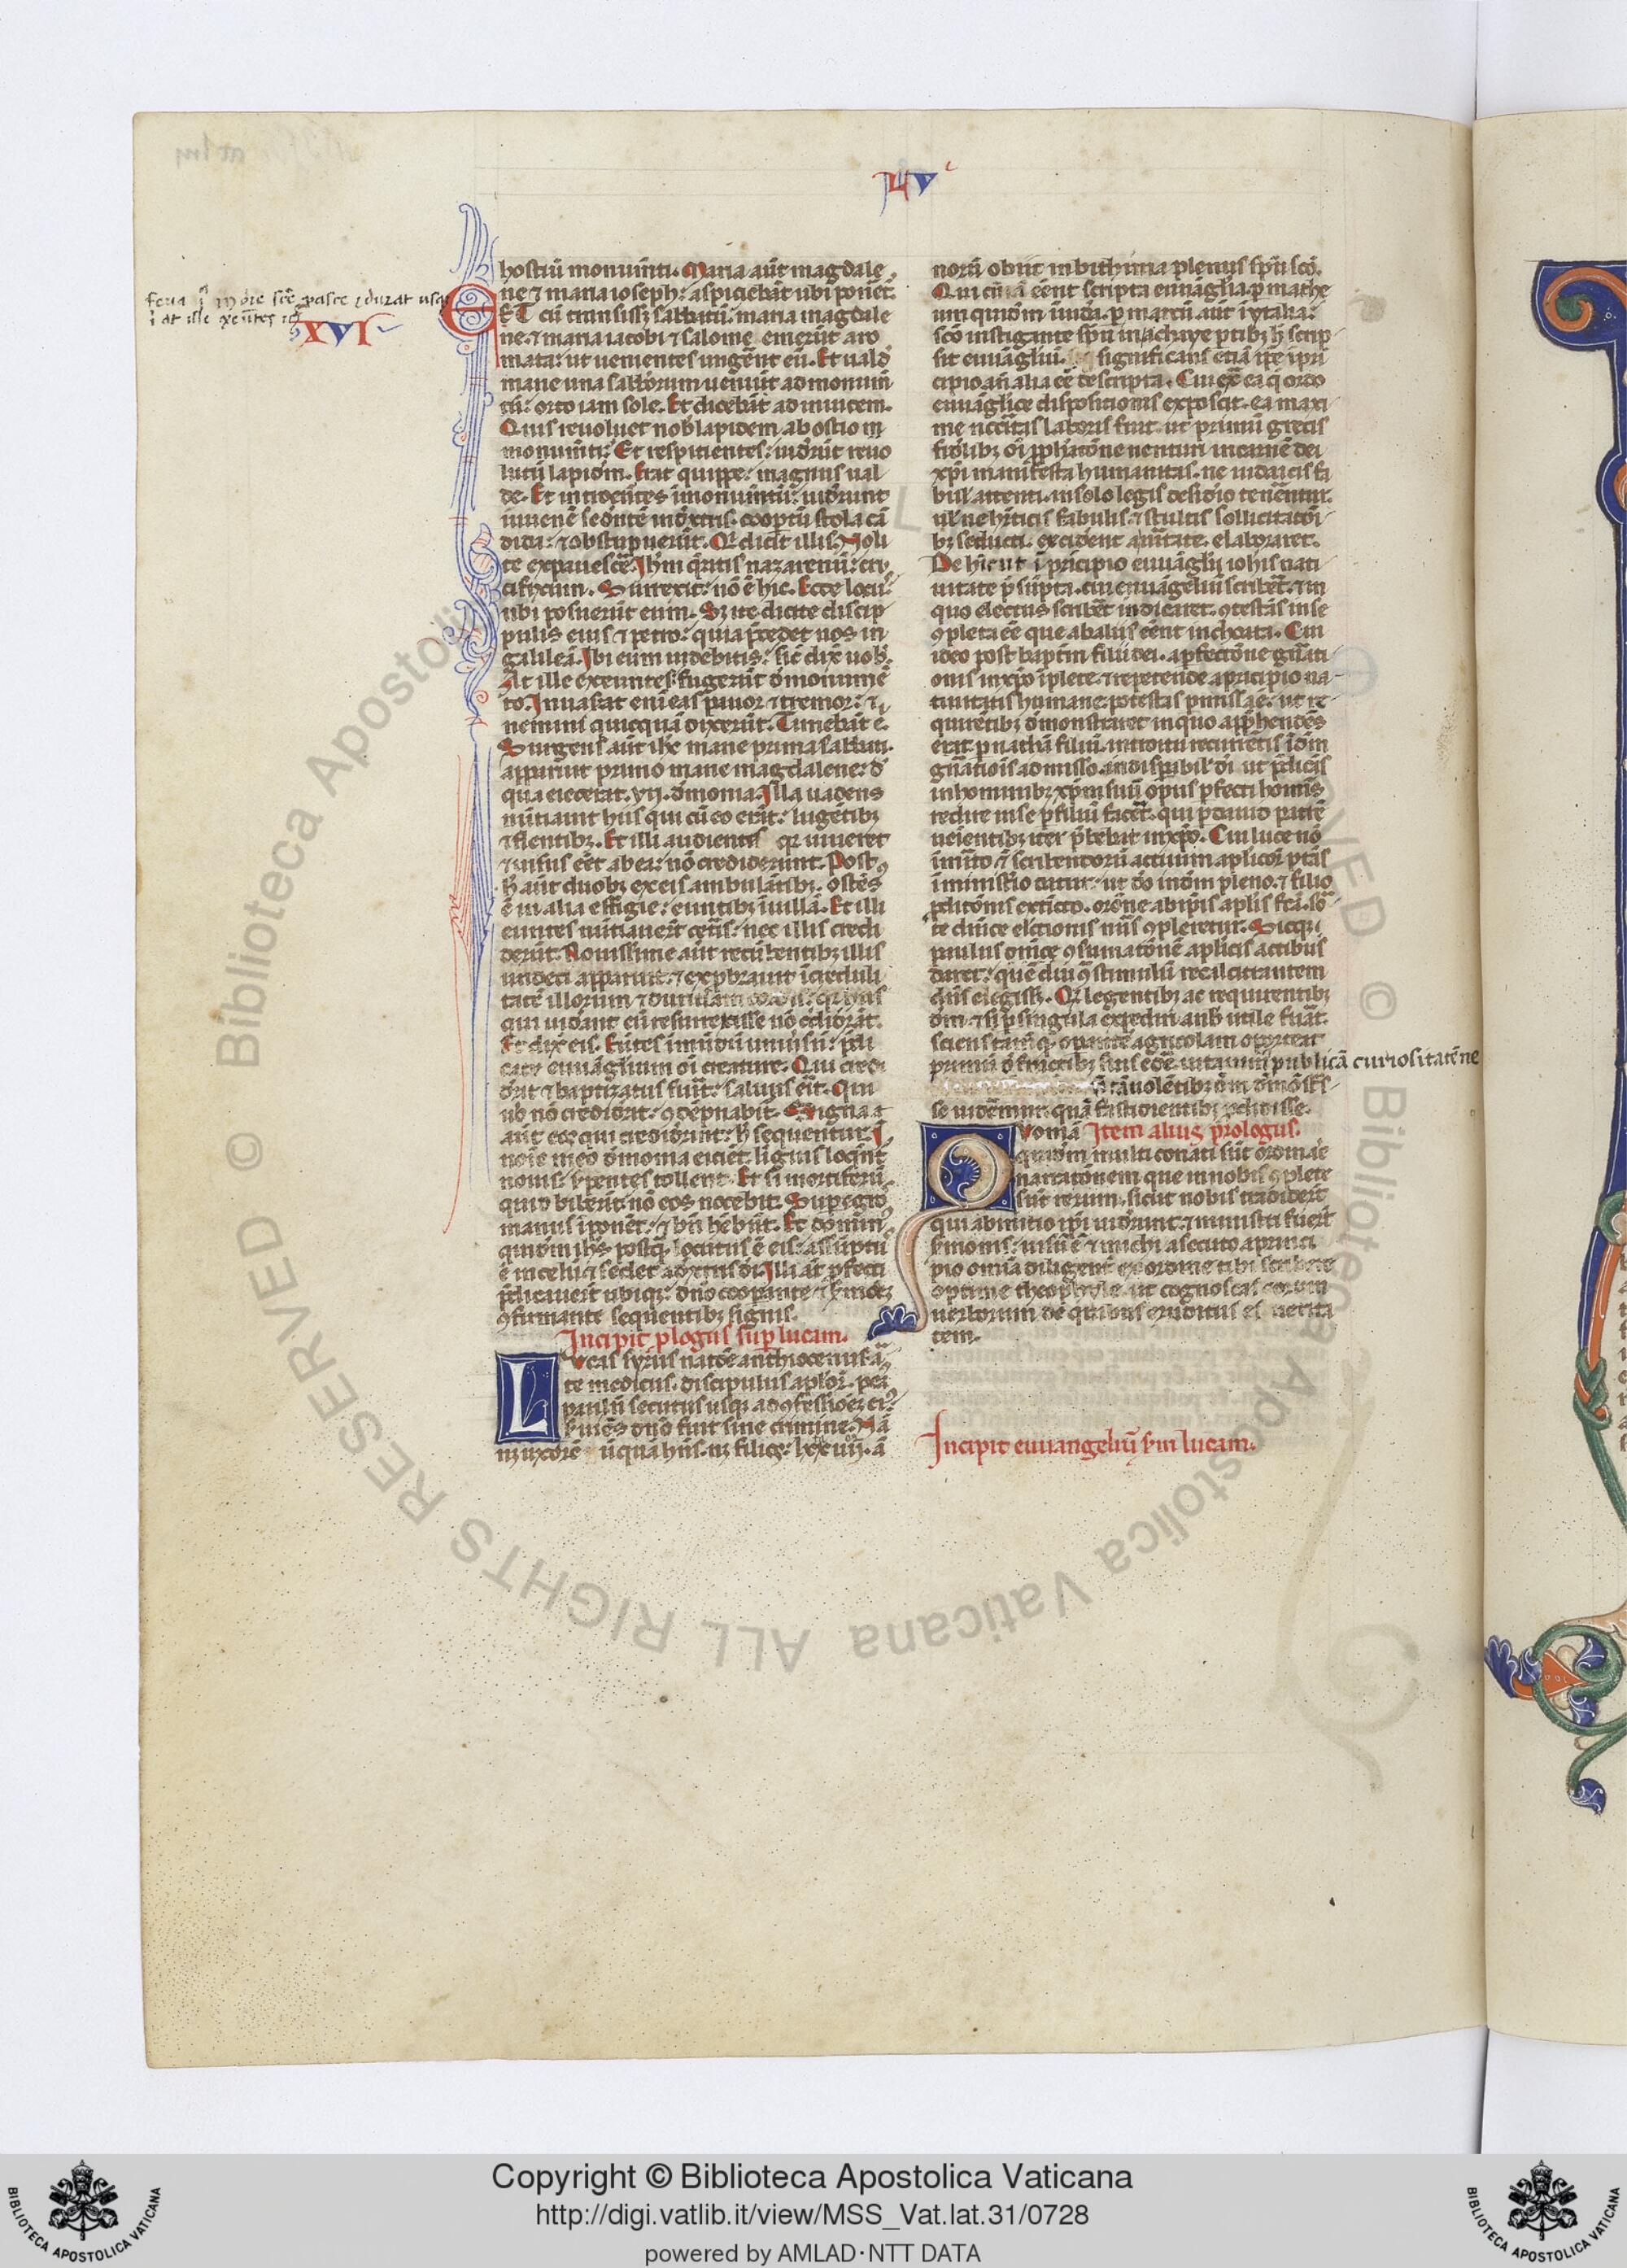 LV
feria ij in die sc̄e pasce ⁊ durat usq̄
i at ille exeūtes ⁊c̄
XVI
hostiū monum̄ti. Maria aūt magdale
ne ⁊ maria ioseph: aspiciebāt ubi poner̄t.
ET cū transiss₃ sabbatū: maria magdale
ne ⁊ maria iacobi ⁊ salome emerūt aro
mata: ut uenientes ungerēt eū. Et uald̓
mane una sabb̓orum ueniūt ad monum̄
tū: orto iam sole. Et dicebāt ad inuicem.
Quis reuoluet nob̓ lapidem ab ostio
monum̄ti: Et respicientes: uid̓rūt reuo
lutū lapid̄m. Erat quippe: magnus ual
de. Et introeūtes ī monum̄tū: uid̓runt
iuuenē sedentē in dext̓is. coop̄tū stola cā
dida: ⁊ obstupuerūt. Qi dicit illis. Noli
te expauesc̄e. Ih̄m q̄ritis nazarenū: cru
cifixum. Surrexit: nō ē hic. Ecce locus
ubi posuerūt eum. Sz ite dicite disci
pulis eius ⁊ petro: quia p̄cedet uos in
galileā. Ibi eum uidebitis: sic̄ dix̄ uob̓.
At ille exeuntes: fugerūt d̓ monumē
to. Inuas̓at eni eas pauor ⁊ tremor: ⁊
nemini quicquā dixerūt. Timebāt ē.
Surgens aūt ih̄c mane prima sabbati.
apparuit primo marie magdalene: d̓
qua eiecerat. vij. d̓monia. Illa uadens
nūtiauit his qui cū eo erāt: lugētib₃
⁊ flentib₃. Et illi audientes qi uiueret
⁊ uisus eēt ab ea: nō crediderunt. Post
h̄ aūt duob₃ ex eis ambulātib₃. ostēs
ē in alia effigie: euntib₃ ī uillā. Et illi
euntes nūtiauerūt cet̓is: nec illis credi
derūt. Nouissime aūt recūbentib₃ illis
undeci apparuit: ⁊ exp̄brauit īcreduli
tatē illorum ⁊ duritiam cordis: qi his
qui uid̓ant eū resurrexisse nō c̓did̓rāt.
Et dix̄ eis. Eūtes ī mūdū uniūsū: p̄di
cate euuāglium oī creature. Qui credi
d̓rit ⁊ baptizatus fu̓it: saluus erit. Qui
u̓o nō credid̓rit: ꝯdēpnabit̓. Signa
aūt eos qui credid̓rint: h̄ sequentur. I
noīe meo d̓monia eiciēt. liguis loq̄nt̓
nouis: s̓pentes tollent. Et si mortiferū
quid biberīt: nō eos nocebit. Sup̄ egros
manus īponēt: ⁊ bn̄ h̄ebūt. Et domin̓
quid̄m ih̄s postq̄ locutus ē eis: assūptus
ē in celū ⁊ sedet a dext̓is d̓i. Illi aūt p̄fecti
p̄dicauerūt ubiq₃: d̄no coop̄ante ⁊ s̓monē
ꝯfirmante sequentib₃ signis.
Incipit plogus sup̄ lucam.
Lvcas syrus natōe anthiocenus ar
te medicus. discipulus aplor̄. postea
paulū secutus usq₃ ad ꝯfessionē ei̓.
s̓uiēs d̄no fuit sine crimine. Nā
ne₃ uxorē ūquā hn̄s. ne₃ filios: lxxiiij. ā
norū obiit in bithinia plenus sp̄u sc̄o.
Qui cū iā eēnt scripta euuāglia p̄ mathe
um quid̄m ī iudea. p̄ marcū aūt ī ytalia:
sc̄o instigante sp̄u in achaye p̄tib₃ h̄ scrip
sit euuāgliū. significans etiā ip̄e ī pri
cipio an̄ alia eē descripta. Cui ex̄ ea q̄ ordo
euuāglice dispositionis exposcit. ea maxi
me nēcc̄itas laboris fuit. ut primū grecis
fid̓lib₃ oī p̄phatiōne uenturi in carnē dei
xp̄i manifesta humanitas. ne iudaicis fa
bul̓ attenti. in solo legis desid̓io tenerēntur.
ul̓ ne h̓eticis fabulis ⁊ stultis sollicitatōi
b₃ seducti. excid̓ent a ū̓itate. elaboraret.
De hīc ut ī p̓ncipio euuāglij ioh̄is nati
uitate p̄sūpta. cui euuāgeliū scrib̓et. ⁊ in
quo electus scrib̓et indicaret. ꝯtestās in se
ꝯpleta eē que ab aliis eēnt inchoata. Cui
ideo post baptm̄ filii dei. a p̄fectiōne gn̓ati
onis in xp̄o īplete ⁊ repetende a p̓ncipio na
tiuitatis humane potestas p̄missa ē: ut re
quirētib₃ d̓monstraret in quo app̄hendēs
erat. p̄ nathā filiū. introitu recurrētis ī dm̄
gn̓atiois admisso. indisp̄abil̓ d̓i ut p̄dicās
in hominib₃ xp̄m suū opus p̄fecti hom̄is
redire in se p̄ filiū facet̓. qui p̄ dauid patrē
ueientib₃ iter p̄bebat in xp̄o. Cui luce nō
īmīto ⁊ scribendorū actuum aplicor̄ p̄tās
ī minist̓io datur: ut d̄o in dm̄ pleno ⁊ filio
p̄ditiōnis extīcto. orōne ab ip̄is aplis fcā. sor
te d̄nice elc̄tionis nūs ꝯpleretur. Sicq₃
paulus ꝯsumatiōnē aplicis actibus
daret: quē diu ꝯ stimulū recalcitrantem
d̄ns elegiss₃. Qi legentib₃ ac requirentib₃
d̄m ⁊ si p̄ singula expediri a nob̓ utile fu̓at.
sciens tam̄q̄. op̄antē agricolam oporteat
primū d̓ fructib₃ suis edē: uitauim̓ publicā curiositatē ne
nō tā uolētib₃ d̄m d̓mōst̓as
se uid̄emur. quā fastidientib₃ p̄didisse.
Qvoniā Item alius prologus.
quid̄m multi conati sūt ordināe
narratiōnem que in nobis ꝯplete
sūt rerum. sicut nobis tradiderūt
qui ab initio ip̄i uid̓runt: ⁊ ministri fuerūt
s̓monis: uisū ē ⁊ michi asecuto a princi
pio omīa diligent̓ ex ordine tibi scribere
optime theophyle. ut cognoscas eorum
uerborum de quibus eruditus es uerita
tem.
Incipit euuangeliū s̄m lucam.
Copyright © Biblioteca Apostolica Vaticana
http://digi.vatlib.it/view/MSS_Vat.lat.31/0728
powered by AMLAD·NTT DATA
BIBLIOTECA APOSTOLICA VATICANA
BIBLIOTECA APOSTOLICA VATICANA
© Biblioteca Apostolica Vaticana ALL RIGHTS RESERVED